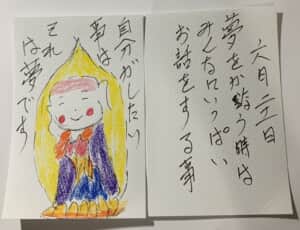 六月二一日
夢をか う時は
みんなにいっぱい
お話をする事
自分がしたい
事は
それは夢です